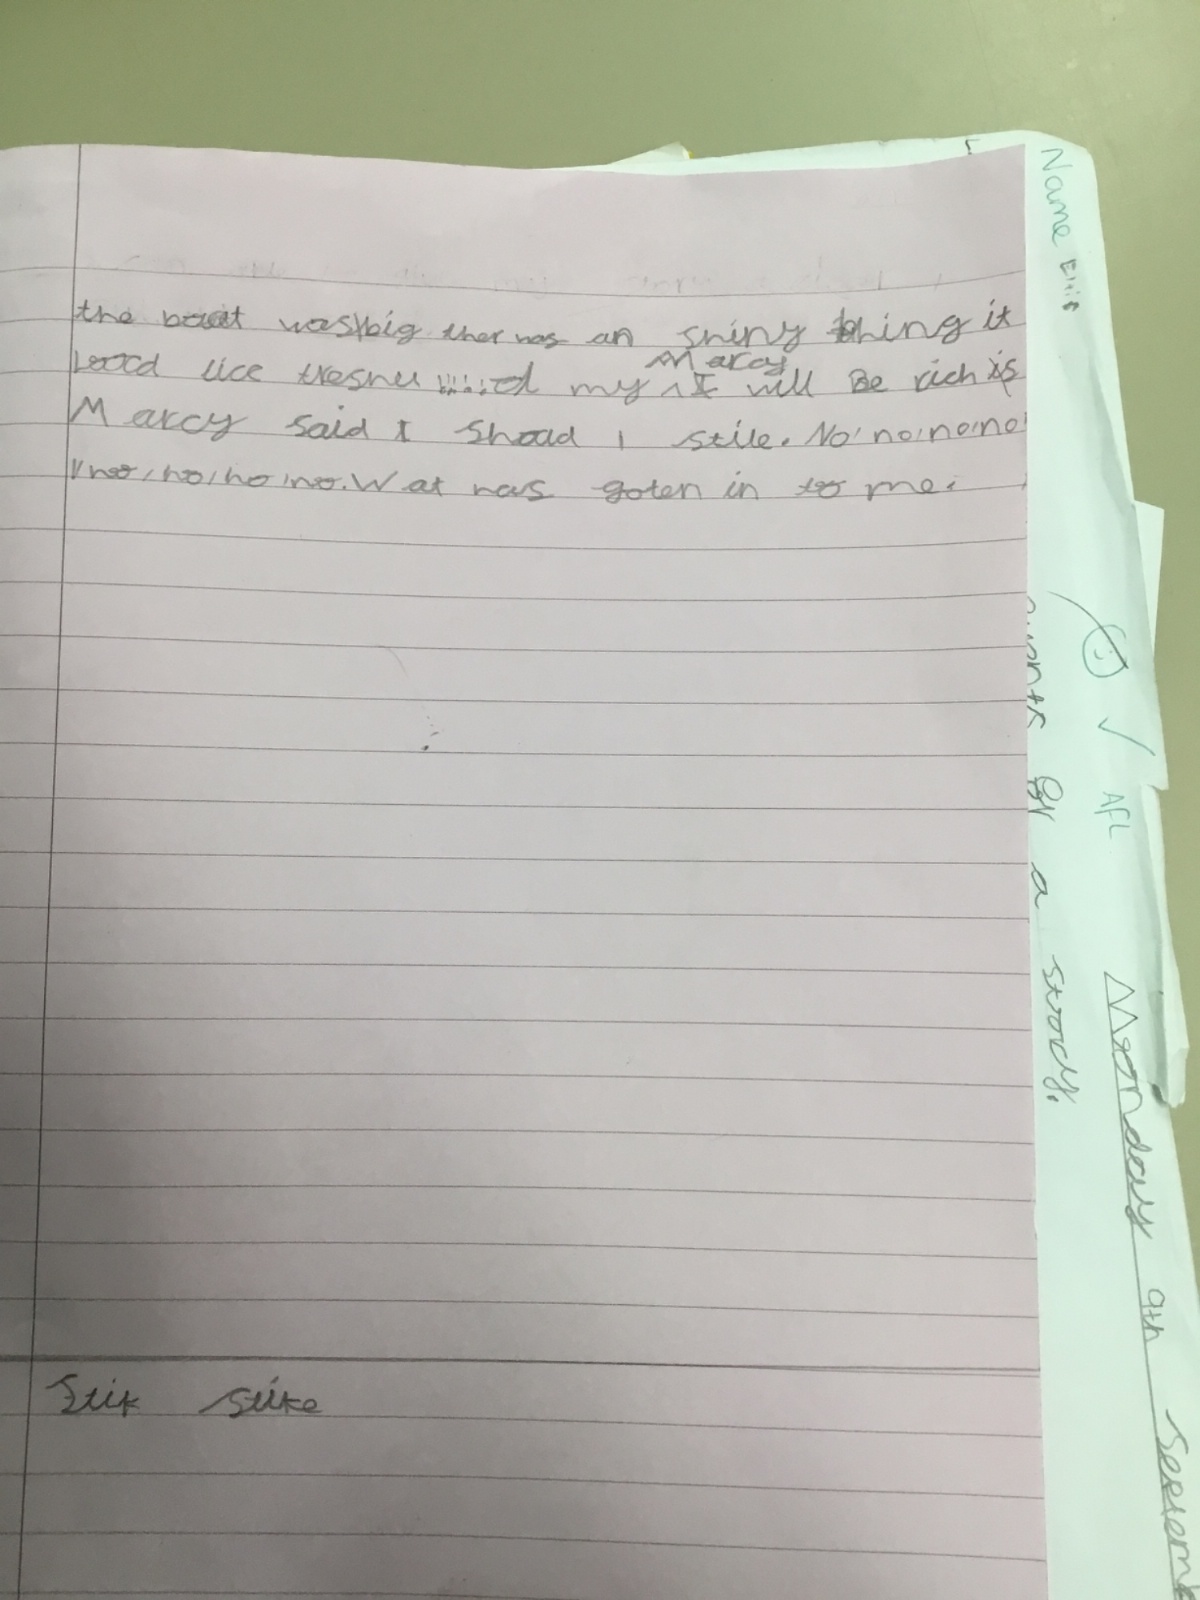 the boat was big ther was an shiny thing it
loocd lice tresher !!!! my Marcy I will Be rich is
Marcy said I shoad I stile. No, no, no, no, no,
no, no, no, no. Wat has goten in to me.
Stik stike
Name Ellis
AFL
for a stoory.
Moonday 9th